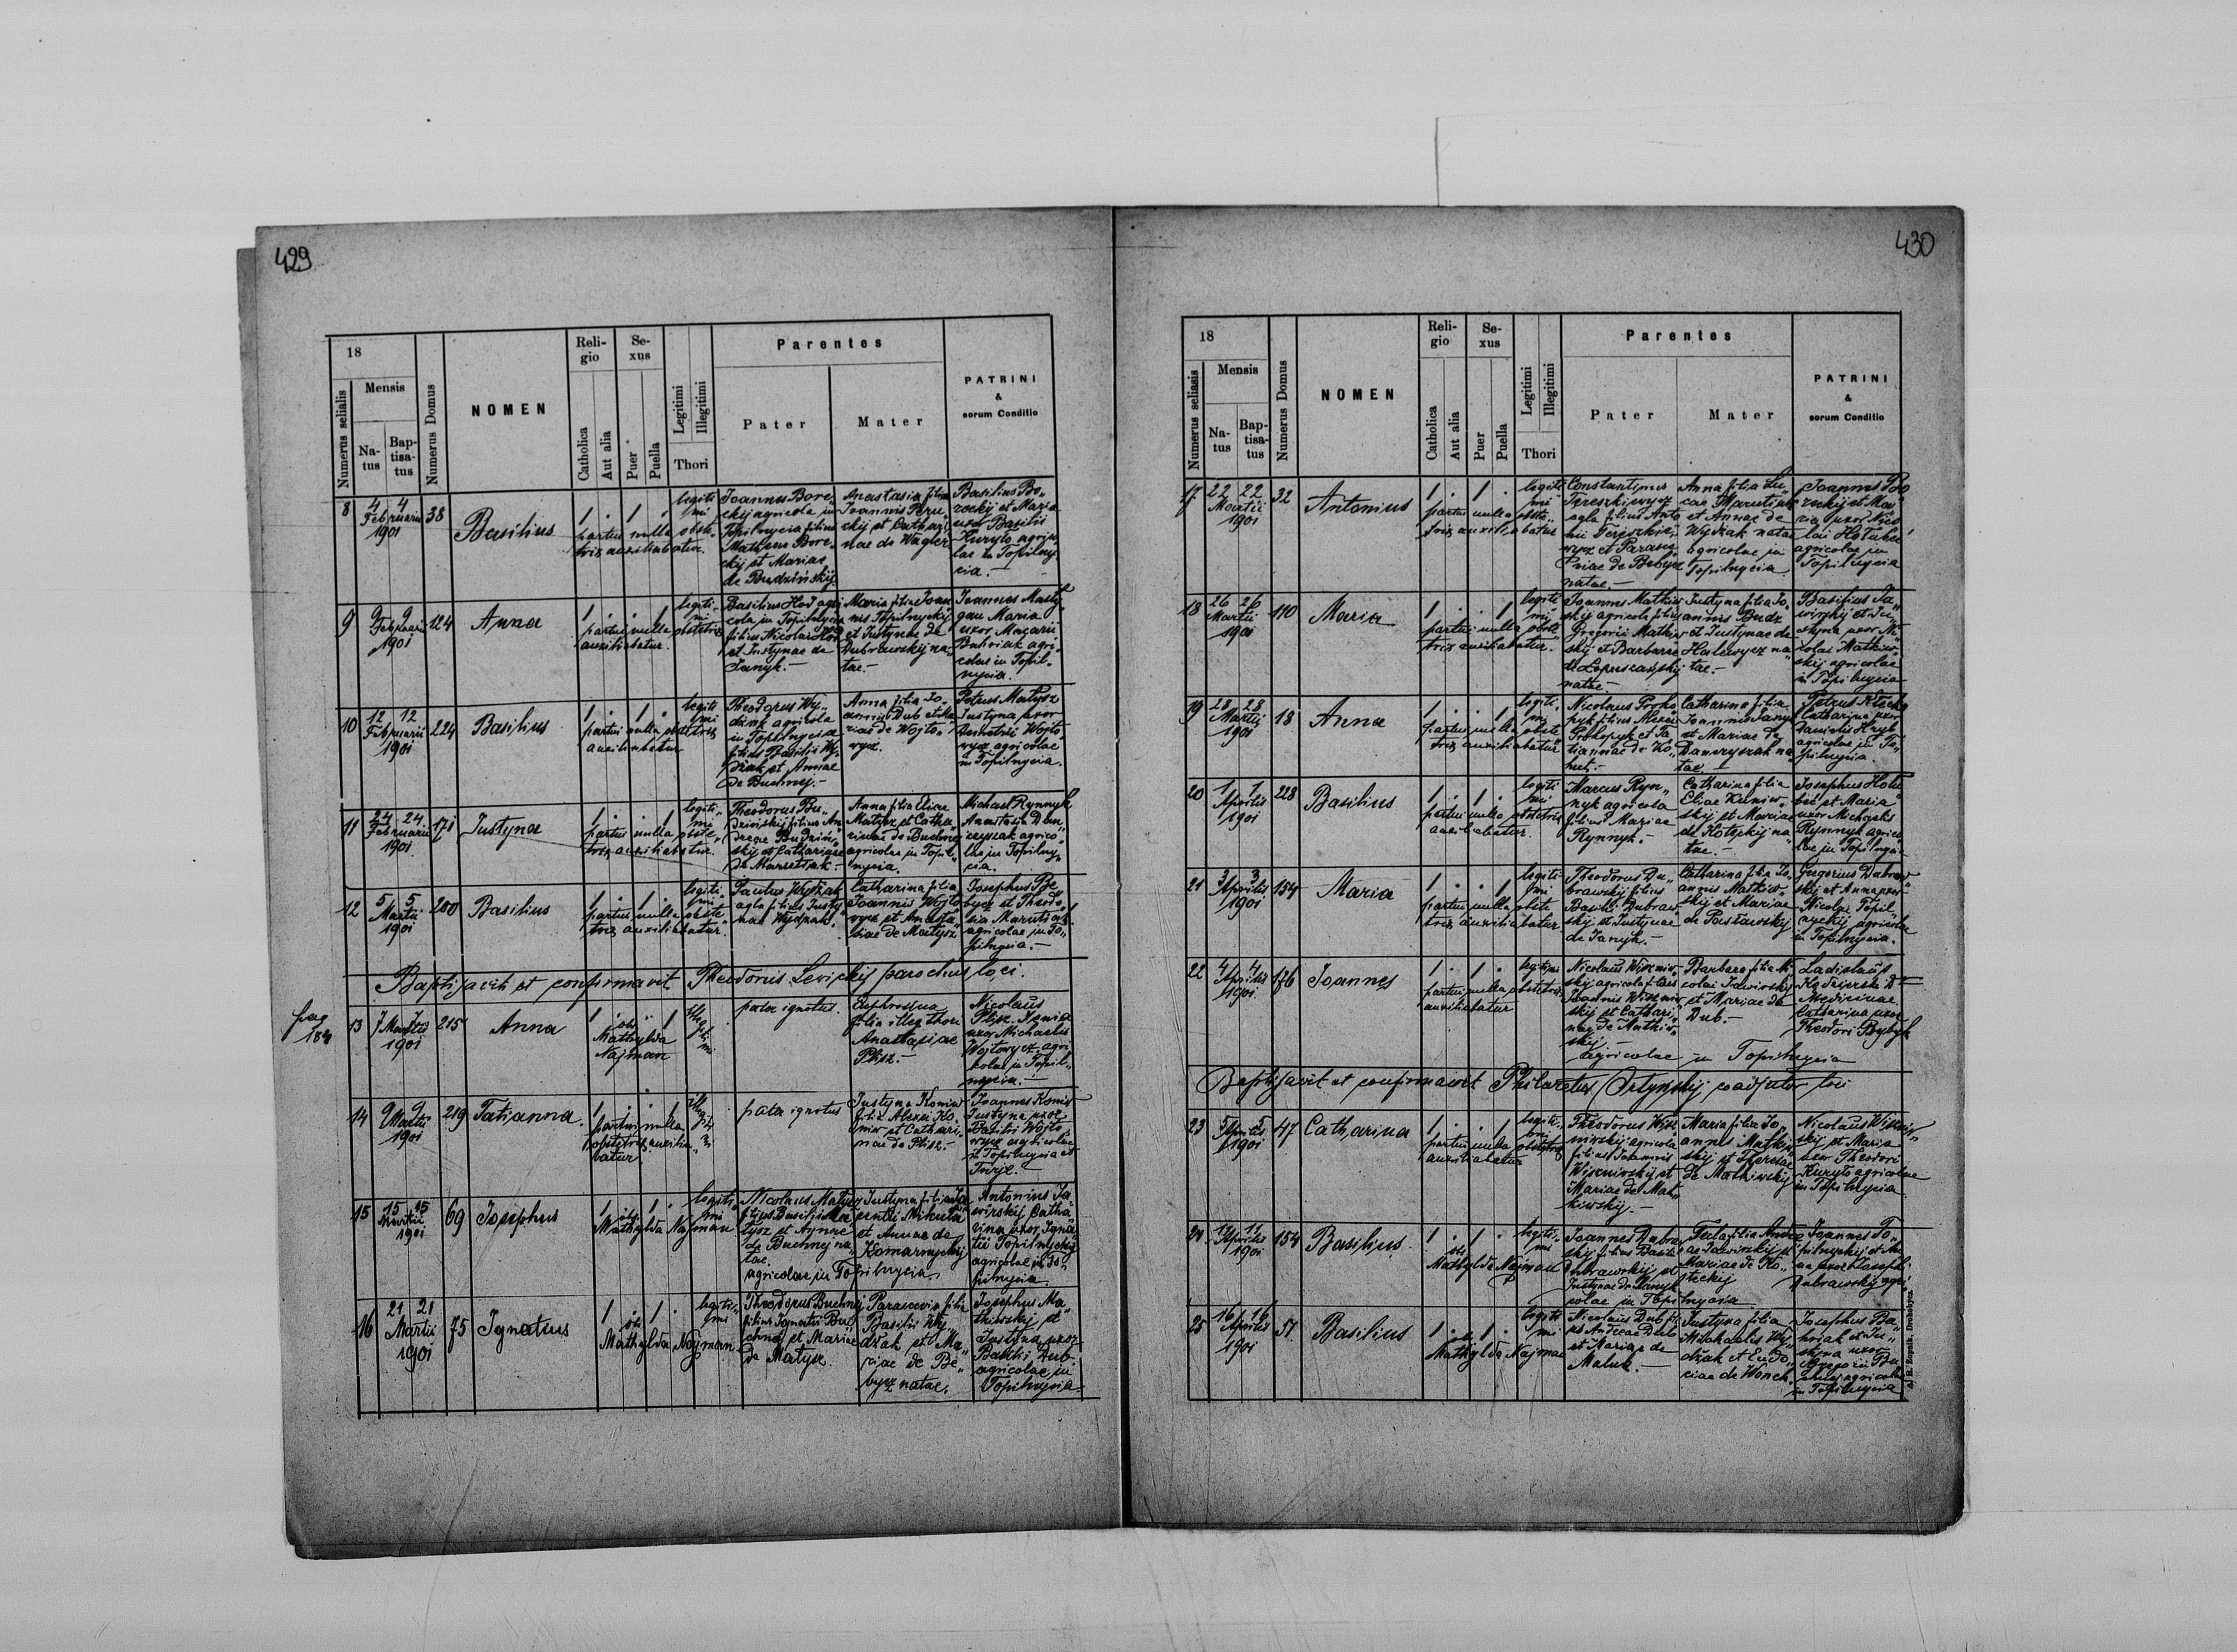 429
18
Mensis
Numerus serialis
Na-
tus
Bap-
tisa-
tus
Numerus Domus
NOMEN
Reli-
gio
Catholica
Aut alia
Se-
xus
Puer
Puella
Legitimi
Illegitimi
Thori
Parentes
Pater
Mater
PATRINI
&
eorum Conditio
8
4 4
Februarii
1901
38
Basilius
1 . 1 .
partui nulla obste-
trix auxiliabatur.
legiti
mi
Joannes Bore„
ckij agricola in
Topilnycia filius
Mathaei Bore„
ckij et Mariae
de Budzińskij
Anastasia filia
Joannis
et Cathari
nae de Wagler
Basilius Bo„
reckij et Maria
uxor Basilii
Kuryło agrico
lae in Topilny
cia.-
9
9 9
Februarii
1901
124
Anna
1 . . 1
partui nulla obstetrix
auxiliabatur.
legiti„
mi
Basilius Hod agri
cola in Topilnycia
filius Nicolai Hod
et Justynae de
Janyk.-
Maria filia Joan
nis Topilnyckij
et Justynae de
Dubrawskij na„
tae.-
Joannes
Maria
uxor
agri„
colae in Topil„
nycia.
10
12 12
Februarii
1901
224
Basilius
1 . 1 .
partui nulla obstetrix
auxiliabatur
legiti
mi
Theodorus Wy„
dżak agricola
in Topilnycia
filius Basilii Wy„
dżak et Annae
de Buchnij.-
Anna filia Jo„
annis Dub et Ma
riae de Wojto„
wycz.
Petrus Matysz
Justyna uxor
Demetrii Wojto
wycz agricolae
in Topilnycia.
11
24 24
Februarii
1901
171
Justyna
1 . . 1
partui nulla obste„
trix auxiliabatur.
legiti„
mi
Theodorus Bu„
dzińskij filius An
dreae Budziń„
skij et Catharinae
de Marutiak.-
Anna filia Eliae
Matysz et Catha„
rinae de Buchnij
agricolae in Topil„
nycia.
Michael Rynnyk
Anastasia Dan„
czyszak agrico„
lae in Topilny„
cia.
12
5 5
Martii
1901
200
Basilius
1 . 1 .
partui nulla obste„
trix auxiliabatur.
legiti„
mi
Paulus Wydżak
agla filius Justy
nae Wydżak.
Catharina filia
Joannis Wojto
wycz et Anasta„
siae de Matysz
Josephus Be
bycz et Theodo„
sia Marutiak
agricolae in To„
pilnycia.-
Baptisavit et confirmavit Theodorus Levickij parochus loci.
pag
184
13
7 7
Martii
1901
215
Anna
1 . . 1
obs
Mathylda
Najman
illegi
ti
mi
pater ignotus.
Euphrosyna
filia illeg thori
Anastasiae
Plisz.-
Nicolaus
Plisz. Xenia
uxor Michaelis
Wojtowycz agri
kolae in Topil„
nycia.-
14
9 9
Martii
1901
219
Tatianna.
1 . . 1
partui nulla
obstetrix auxilia„
batur.
illegi
ti
mi
pater ignotus
Justyna Koniw
filia Alexii Ko„
niw et Cathari„
nae de Plisz.-
Joannes Koniw
Justyna uxor
Basilii Wojto„
wycz agricolae
in Topilnycia et
Turje.-
15
15 15
Martii
1901
69
Josephus
1 . 1 .
obs
Mathylda Najman
legiti„
mi
Nicolaus Matysz
filius Basilii Ma„
tysz et Agnae
de Buchnij na„
tae.
agricolae in Topilnycia.
Justyna filia
Mikuła
et Annae de
Komarnyckij
Antonius Ja„
wirskij Catha„
rina uxor Igna„
tii Topilnyckij
agricolae in To„
pilnycia.
16
21 21
Martii
1901
75
Ignatius
1 . 1 .
obs
Mathylda Najman
legiti„
mi
Theodorus Buchnij
filius Ignatii Bu„
chnij et Mariae
de Matysz.
Parascevia filia
Basilii Wy„
dżak et Ma„
riae de Be„
bycz natae.
Josephus Ma„
tkiwskij et
Justyna uxor
Basilii Dub
agricolae in
Topilnycia.
430
18
Mensis
Numerus seliasis
Na-
tus
Bap-
tisa-
tus
Numerus Domus
NOMEN
Reli-
gio
Catholica
Aut alia
Se-
xus
Puer
Puella
Legitimi
Illegitimi
Thori
Parentes
Pater
Mater
PATRINI
&
eorum Conditio
17
22 22
Martii
1901
32
Antonius
1 . 1 .
partui nulla obste„
trix auxiliabatur
legiti
mi
Constantinus
Tereszkiewycz
agla filius Anto
nii Tereszkie„
wycz et Parasce
viae de Bebycz
natae.-
Anna filia Lu„
cae Marutiak
et Annae de
Wydżak natae
agricolae in
Topilnycia.
Joannes Bo
reckij et Ma
ria uxor Nico
lai Hołubec
agricolae in
Topilnycia
18
26 26
Martii
1901
110
Maria
1 . . 1
partui nulla obste„
trix auxiliabatur.
legiti
mi
Joannes Matkiw
skij agricola filius
Gregorii Matkiw
skij et Barbarae
de Łopuszańskij
natae.-
Justyna filia Jo„
annis Budz
et Justynae de
Halewycz na„
tae.-
Basilius Ja„
wirskij et Ju„
styna uxor Ni„
colai Matkiw„
skij agricolae
in Topilnycia
19
28 28
Martii
1901
18
Anna
1 . . 1
partui nulla obste
trix auxiliabatur
legiti„
mi
Nicolaus Proko
pyk filius Alexii
Prokopyk et Ta„
tiannae de Ko„
hut.-
Catharina filia
Joannis Janyk
et Mariae de
Danczyszak na„
tae.-
Petrus
Catharina uxor
Danielis Hryb
agricolae in To„
pilnycia.
20
1 1
Aprilis
1901
228
Basilius
1 . 1 .
partui nulla obstetrix
auxiliabatur.
legiti
mi
Marcus Ryn„
nyk agricola
filius Mariae
Rynnyk.-
Catharina filia
Eliae Kaniw„
skij et Mariae
de Koteckij na„
tae.-
Josephus Hołu
bec et Maria
uxor Michaelis
Rynnyk agrico
lae in Topilnycia
21
3 3
Aprilis
1901
154
Maria
1 . . 1
partui nulla obste
trix auxiliabatur
legiti„
mi
Theodorus Du„
brawskij filius
Basilii Dubraw„
skij et Justynae
de Janyk.-
Catharina filia Jo„
annis Matkiw„
skij et Mariae
de Pasławskij
Gregorius Dubraw„
skij et Anna uxor
Nicolai Topil
nyckij agricolae
in Topilnycia.
22
4 4
Aprilis
1901
176
Joannes
1 . 1 .
partui nulla obstetrix
auxiliabatur
legitimi
Nicolaus Wiszniw„
skij agricola filius
Joannis Wiszniw
skij et Cathari„
nae de Matkiw„
skij
Barbara filia Ni„
colai Jawirskij
et Mariae de
Dub.-
Ladislaus
Kędzierski Dr
Medicinae.
Catharina uxor
Theodori Bybyk
agricolae in Topilnycia
Baptisavit et confirmavit Philaretus Ortynskij coadjutor loci
23
5 5
Aprilis
1901
47
Catharina
1 . . 1
partui nulla obstetrix
auxiliabatur
legiti„
mi
Theodorus Wisz„
niwskij agricola
filius Joannis
Wiszniwskij et
Mariae de Mat„
kiwskij.-
Maria filia Jo„
annes Matkiw
skij et Theresae
de Matkiwskij
Nicolaus Wiszniw„
skij et Maria
uxor Theodori
Kuryło agricolae
in Topilnycia
24
Aprilis
1901
154
Basilius
1 . 1 .
obs
Mathylda Najman
legiti„
mi
Joannes Dubraw
skij filius Basilii
Dubrawskij et
Justynae de Janyk
Tecla filia Andre
ae Jawirskij et
Mariae de Ko„
steckij
Joannes To„
pilnyckij et An
na uxor Josephi
Dubrawskij agri
colae in Topilnycia
25
16 16
Aprilis
1901
51
Basilius
1 . 1 .
obs
Mathylda Najman
legiti
mi
Nicolaus Dub fi„
us Andreae Dub
et Mariae de
Maluk.
Justyna filia
Michaelis Wy„
dżak et Eudo„
ciae de Wonch.
Josephus
et Ju„
styna uxor
Gregorii Bu„
chnij agricolae
in Topilnycia
Drohobycz